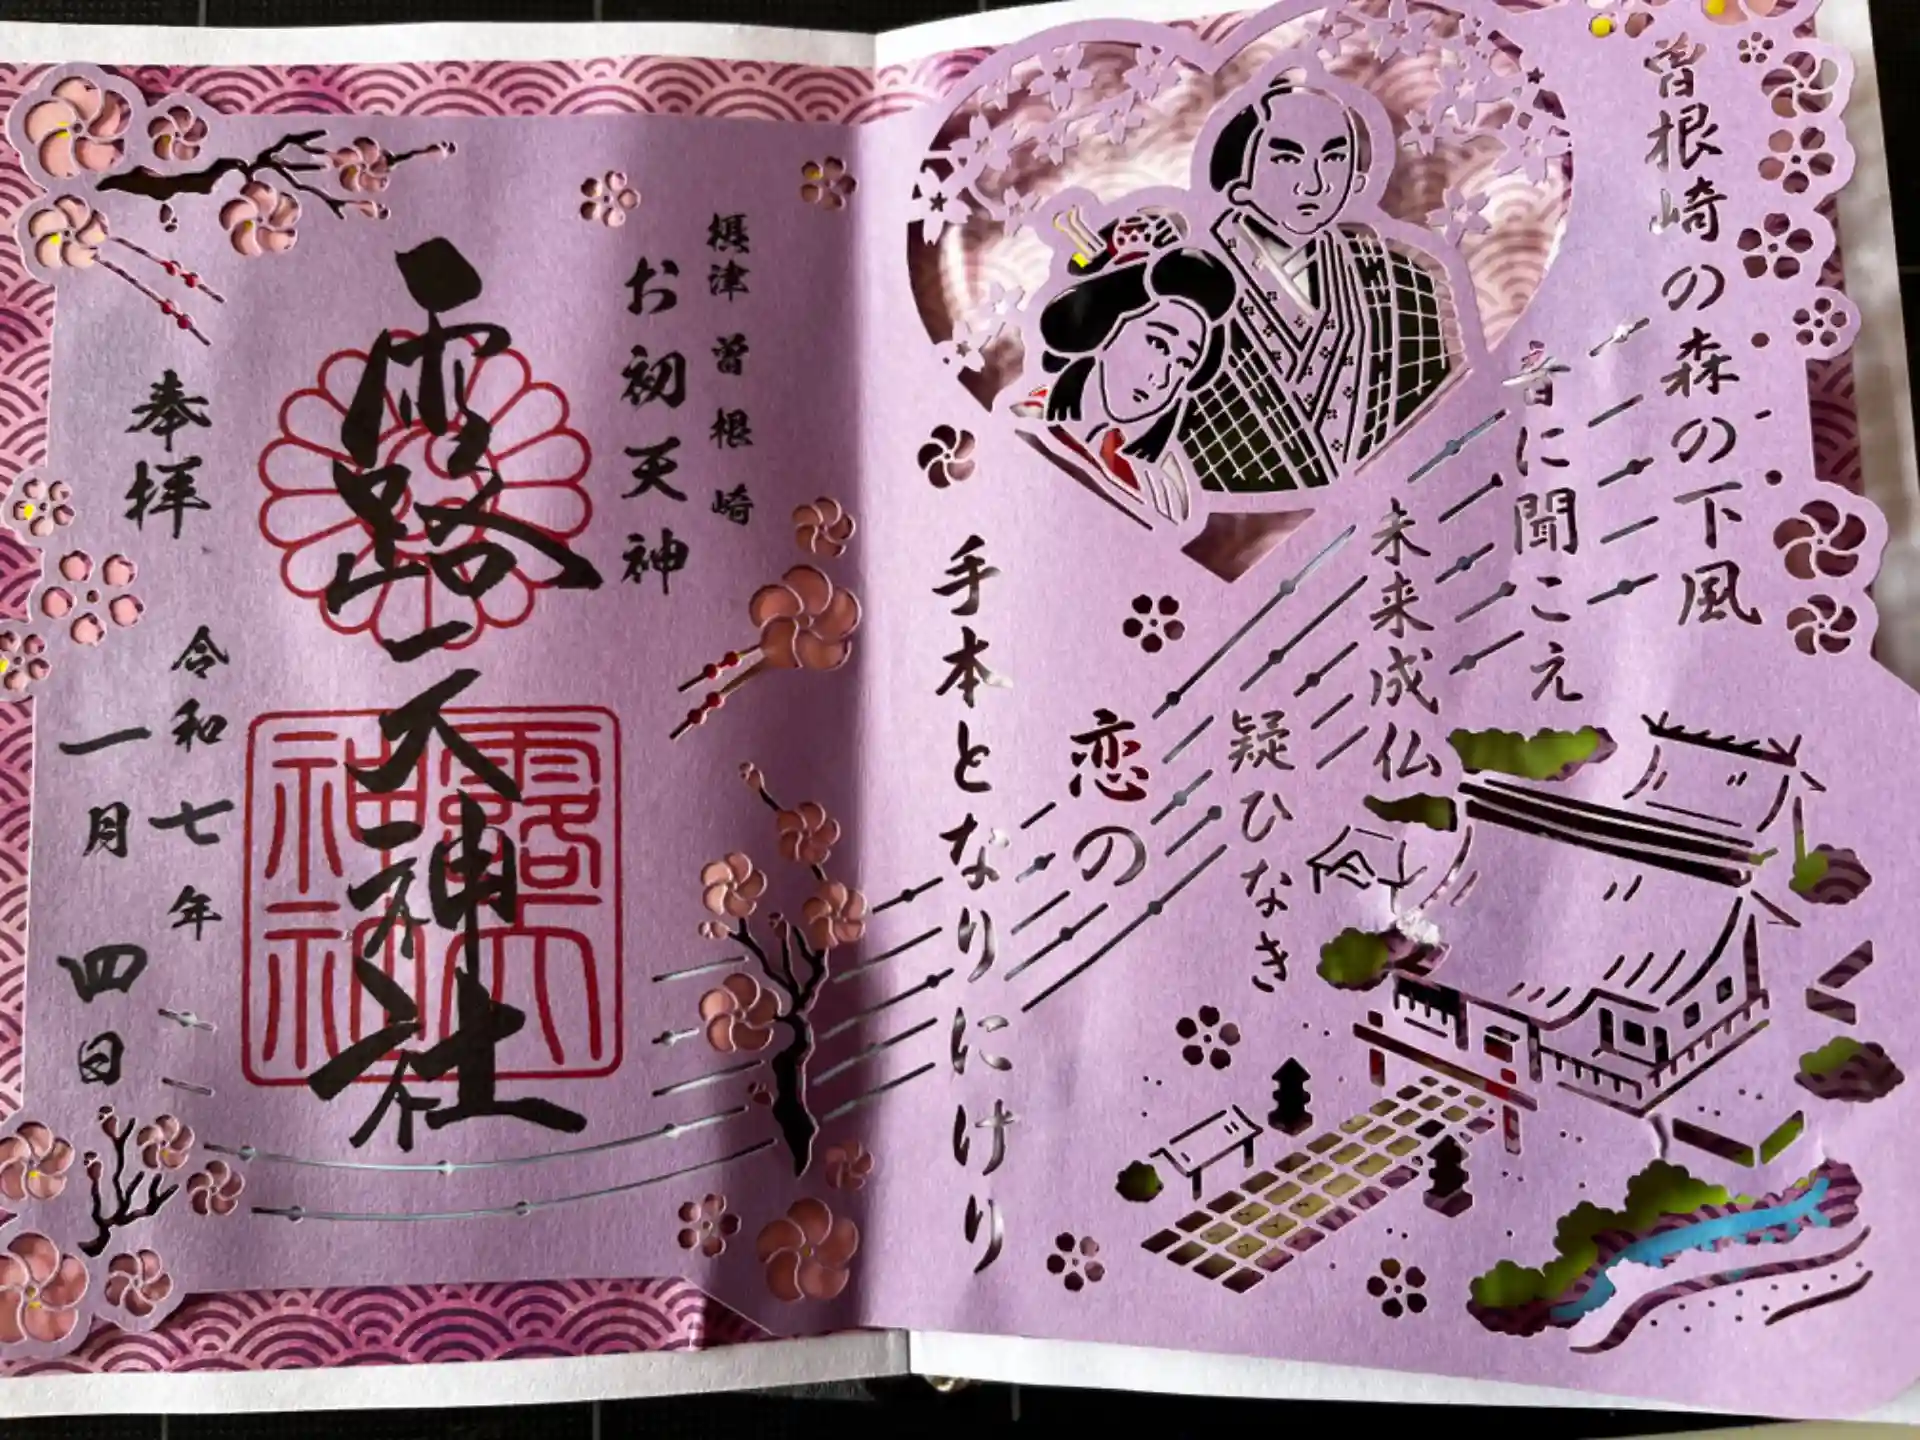 曽根崎の森の下風
音に聞こえ
未来成仏
疑ひなき
恋の
手本となりにけり
摂津曽根崎
お初天神
露天神社
奉拝
令和七年
一月四日
露天
神社